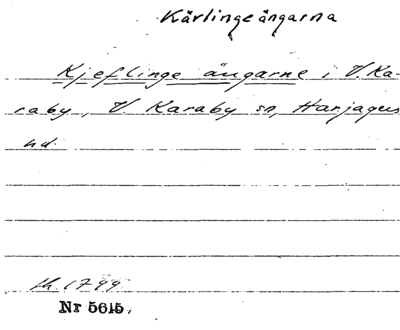 Kärlingeängarna
Kjeflinge ängarne i V. Ka-
raby, V. Karaby sn, Harjagers
hd.
th. 1799
Nr 5615.